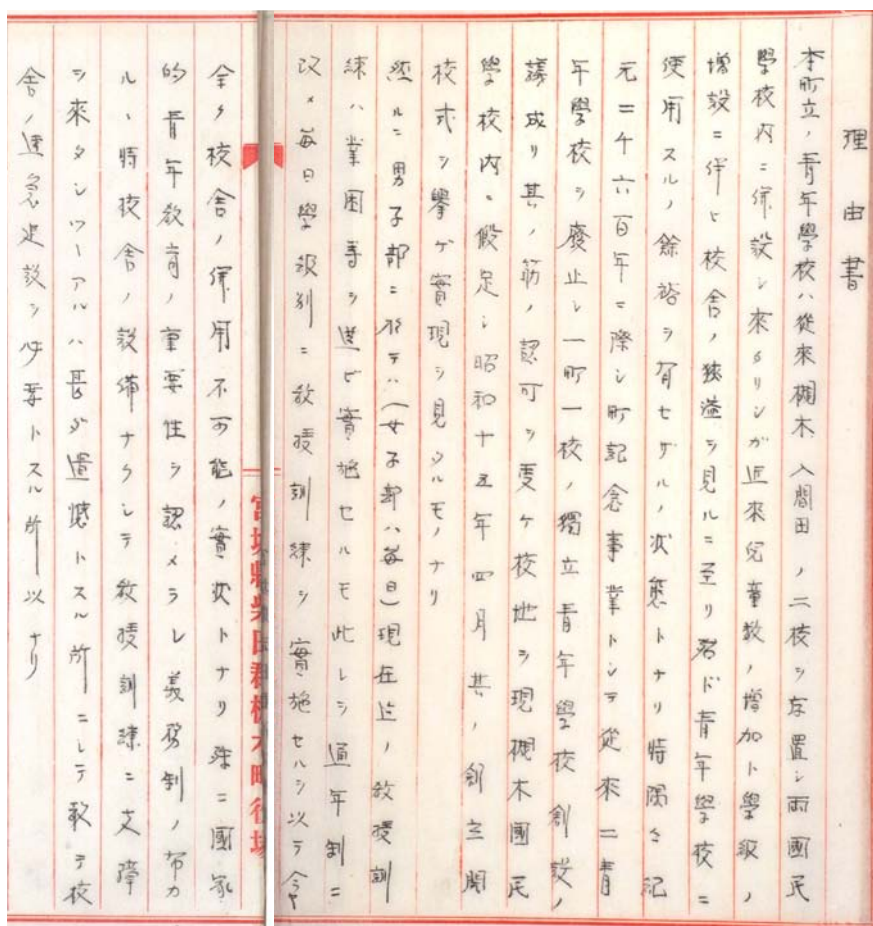 理由書
本町立ノ青年學校ハ從來槻木、入間田ノ二校ヲ存置シ両國民
學校内ニ併設シ來タリシガ近來兒童数ノ增加ト學級ノ
增設ニ伴ヒ校舎ノ狹溢ヲ見ルニ至リ殆ド青年學校ニ
使用スルノ餘裕ヲ有セザルノ状態トナリ時偶々紀
元二千六百年ニ際シ町記念事業トシテ從來ノ二青
年學校ヲ廢止シ一町一校ノ獨立青年學校創設ノ
議成リ其ノ筋ノ認可ヲ受ケ校地ヲ現槻木國民
學校内ニ假定シ昭和十五年四月其ノ創立開
校式ヲ擧ゲ實現ヲ見タルモノナリ
然ルニ男子部ニ於テハ(女子部ハ毎日)現在迄ノ教授訓
練ハ業閑季ヲ選ビ實施セルモ此レヲ通年制ニ
改メ毎日學級別ニ教授訓練ヲ實施セルヲ以テ今
全ク校舎ノ併用不可能ノ實状トナリ殊ニ國家
的青年教育ノ重要性ヲ認メラレ義務制ノ布カ
ル、時校舎ノ設備ナクシテ教授訓練ニ支障
ヲ來タシツーアルハ甚ダ遺憾トスル所ニシテ敢テ校
舎ノ速急建設ヲ必要トスル所以ナリ
宮城縣柴田郡槻木町役場